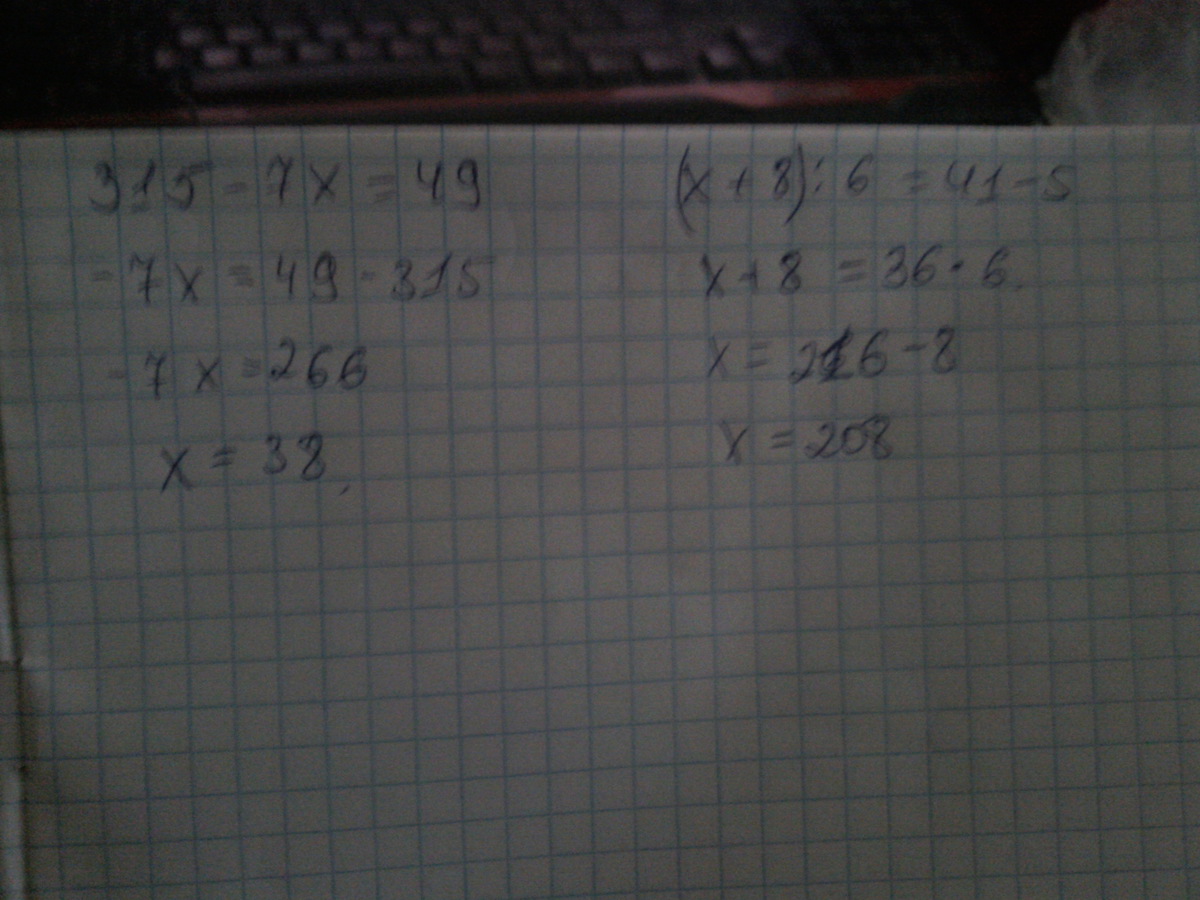 315 - 7x = 49
- 7x = 49 - 315
- 7x = 266
x = 38
(x + 8) : 6 = 41 - 5
x + 8 = 36 · 6
x = 216 - 8
x = 208